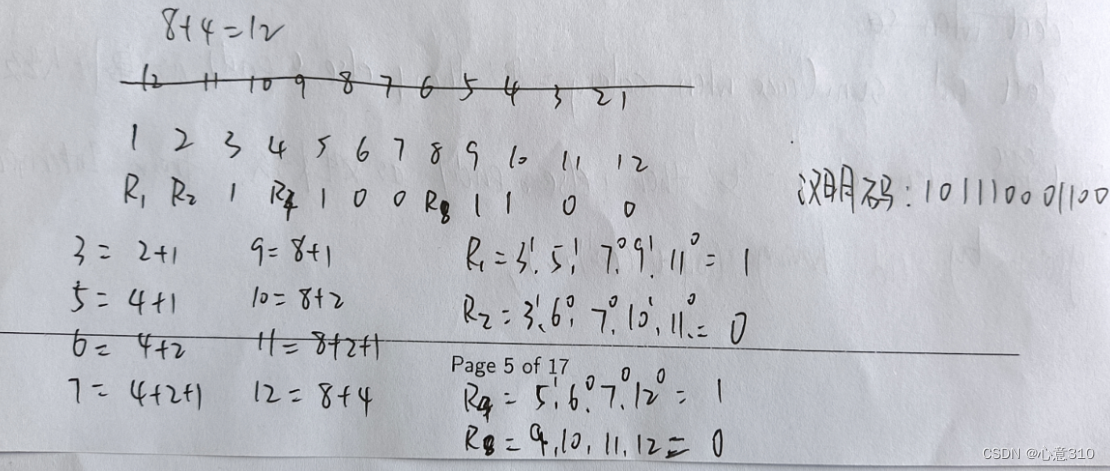 8+4=12
12 11 10 9 8 7 6 5 4 3 2 1
1 2 3 4 5 6 7 8 9 10 11 12
R₁ R₂ 1 R₄ 1 0 0 R₈ 1 1 0 0
汉明码:101110001100
3 = 2+1 9 = 8+1 R₁ = 3¹. 5¹. 7⁰. 9¹. 11⁰ = 1
5 = 4+1 10 = 8+2 R₂ = 3¹. 6⁰. 7⁰. 10¹. 11⁰. = 0
6 = 4+2 11 = 8+2+1
Page 5 of 17
7 = 4+2+1 12 = 8+4 R₄ = 5¹. 6⁰. 7⁰. 12⁰ = 1
R₈ = 9.10, 11, 12 = 0
CSDN @心意310